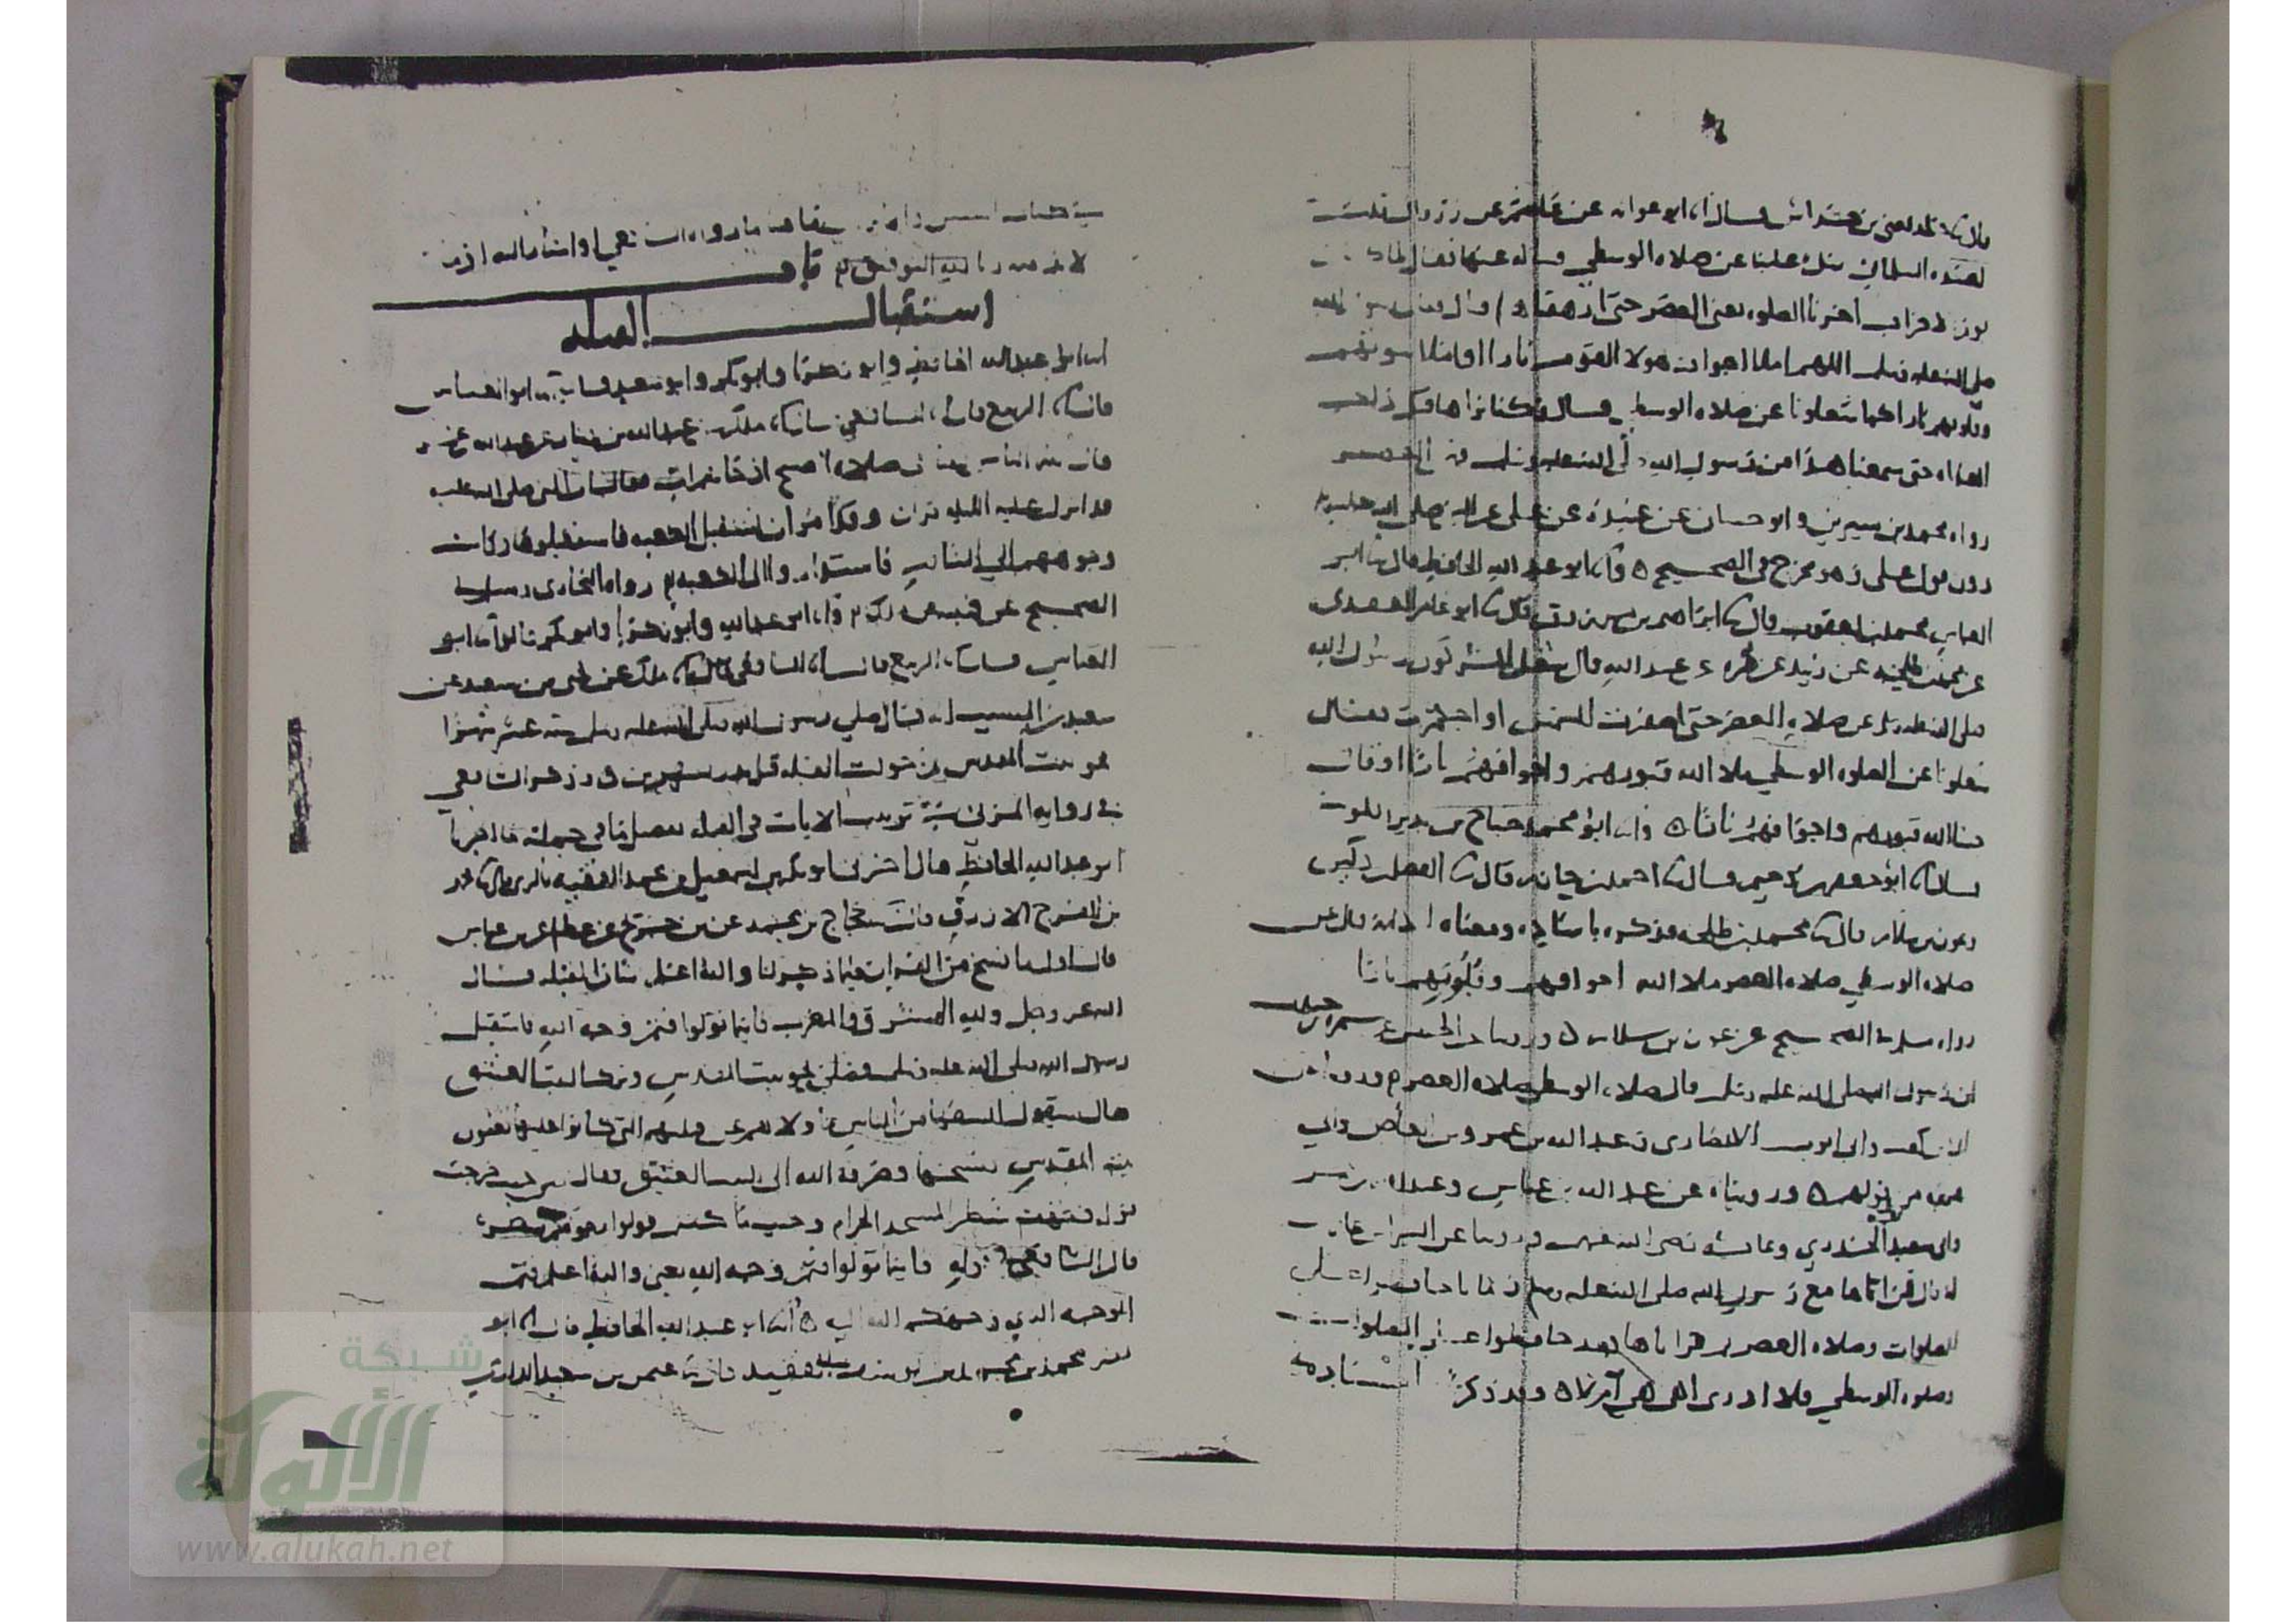 لعبيدة السلماني سل علينا عن صلاة الوسطى فساله عنها فقال
يوم الاحزاب اخرنا الصلوه يعني العصر حتى ارهقنا وقال رسول الله
صلى الله عليه وسلم اللهم املا اجواف هولا القوم نارا او املا بيوتهم
وقلوبهم نارا كما شغلونا عن صلاه الوسطى قال وكنا نراها قبل ذلك
الغداه حتى سمعنا هذا من رسول الله صلى الله عليه وسلم العصر
رواه محمد بن سيرين وابو حسان عن عبيدة عن علي عن النبي صلى الله عليه
دون قول علي وهو مخرج في الصحيح ه وانا ابو عبد الله الحافظ قال نا ابو
العباس محمد بن يعقوب قال نا ابراهيم بن مرزوق قال نا ابو عامر العقدي
عن محمد بن طلحه عن زبيد عن مره عن عبد الله قال شغل المشركون رسول الله
صلى الله عليه وسلم عن صلاه العصر حتى اصفرت الشمس او احمرت فقال
شغلونا عن الصلوه الوسطى ملا الله قبورهم واجوافهم نارا او قال
حشا الله قبورهم واجوافهم نارا ه وانا ابو محمد جناح بن نذير بالكوفه
قال نا ابو جعفر بن دحيم قال نا احمد بن حازم قال نا الفضل بن دكين
وعون بن سلام قال نا محمد بن طلحه فذكره باسناده ومعناه الا انه قال عن
صلاه الوسطى صلاه العصر ملا الله اجوافهم وقلوبهم نارا
رواه مسلم في الصحيح عن عون بن سلام ه وروينا عن الحسن عن سمره بن جندب
ان رسول الله صلى الله عليه وسلم قال صلاه الوسطى صلاه العصر وروي عن
ابي بن كعب وابي ايوب الانصاري وعبد الله بن عمرو بن العاص وابي
هريره من قولهم ه ورويناه عن عبد الله بن عباس وعبد الله بن عمر
وابي سعيد الخدري وعائشه رضي الله عنهم وروينا عن البراء بن عازب
انه قال قراناها مع رسول الله صلى الله عليه وسلم زمانا حافظوا على
الصلوات وصلاه العصر ثم قراناها بعد حافظوا على الصلوات
وصلوه الوسطى فلا ادري اهي هي ام لا ه وقد ذكرنا اسناده
لابد منه وبالله التوفيق باب
استقبال القبله
انا ابو عبد الله الحافظ وابو زكريا وابو بكر وابو سعيد قالوا نا ابو العباس
قال انا الربيع قال انا الشافعي قال انا ملك عن عبد الله بن دينار عن عبد الله بن عمر
قال بينما الناس بقبا في صلاه الصبح اذ اتاهم ات فقال ان النبي صلى الله عليه
قد انزل عليه الليله قران وقد امر ان يستقبل الكعبه فاستقبلوها وكانت
وجوههم الى الشام فاستداروا الى الكعبه رواه البخاري ومسلم في
الصحيح عن قتيبه عن ملك وانا ابو عبد الله وابو زكريا وابو بكر قالوا نا ابو
العباس قال انا الربيع قال انا الشافعي قال انا ملك عن يحيى بن سعيد عن
سعيد بن المسيب انه قال صلى رسول الله صلى الله عليه وسلم سته عشر شهرا
نحو بيت المقدس ثم حولت القبله قبل بدر بشهرين ه وذكر الشافعي
في روايه المزني
ابو عبد الله الحافظ قال اخبرني ابو بكر بن اسمعيل بن محمد الفقيه بالري قال نا محمد
بن الفرج الازرق قال نا حجاج بن محمد عن بن جريج عن عطا عن بن عباس
قال اول ما نسخ من القران فيما ذكر لنا والله اعلم شان القبله قال
الله عز وجل ولله المشرق والمغرب فاينما تولوا فثم وجه الله فاستقبل
رسول الله صلى الله عليه وسلم فصلى نحو بيت المقدس وترك البيت العتيق
فقال سيقول السفها من الناس ما ولاهم عن قبلتهم التي كانوا عليها يعنون
بيت المقدس فنسخها وصرفه الله الى البيت العتيق فقال ومن حيث خرجت
فول وجهك شطر المسجد الحرام وحيث ما كنتم فولوا وجوهكم شطره
قال الشافعي في قوله فاينما تولوا فثم وجه الله يعني والله اعلم فثم
الوجه الذي وجهكم الله اليه ه انا ابو عبد الله الحافظ قال نا ابو
النضر محمد بن محمد بن يوسف الفقيه قال نا عثمن بن سعيد الدارمي
شبكة
الألوكة
www.alukah.net